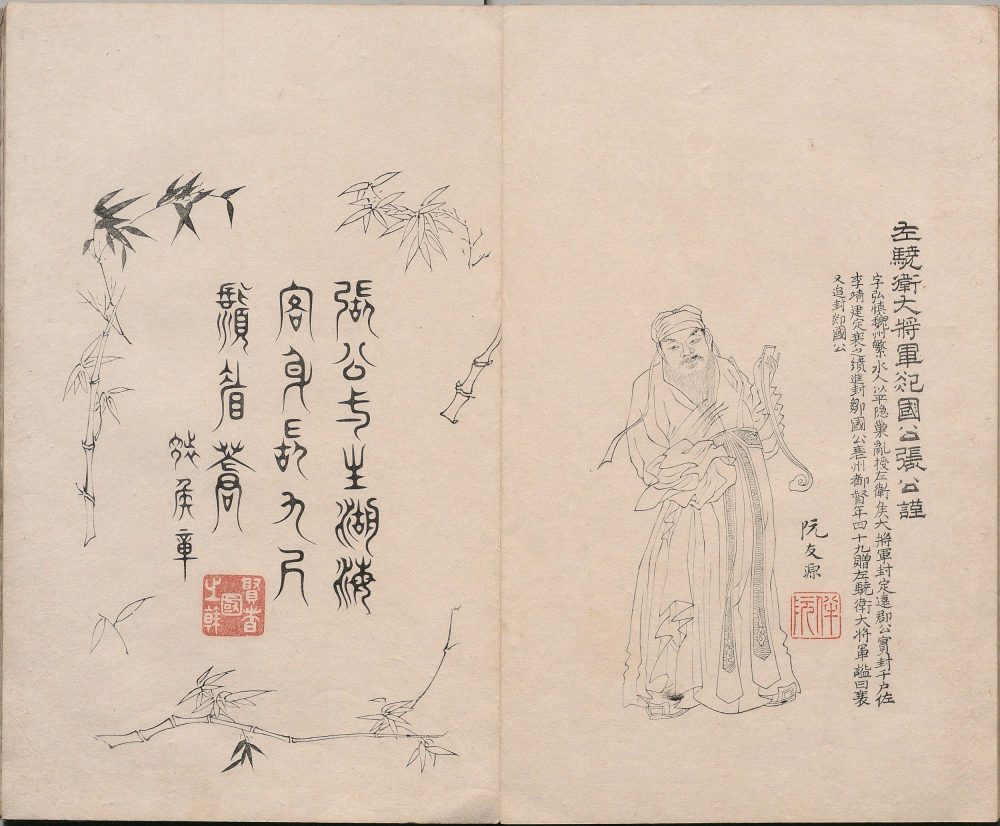 左驍衛大將軍郯國公張公謹
字弘慎魏州繁水人以平隱巢亂授左衛矦大將軍封定遠郡公實封千戶佐
李靖建定襄之績進封鄒國公襄州都督年四十九贈左驍衛大將軍謚曰襄
又追封郯國公
阮友源
張公一生湖海
客身長九尺
鬚眉蒼
章
賢者國之幹